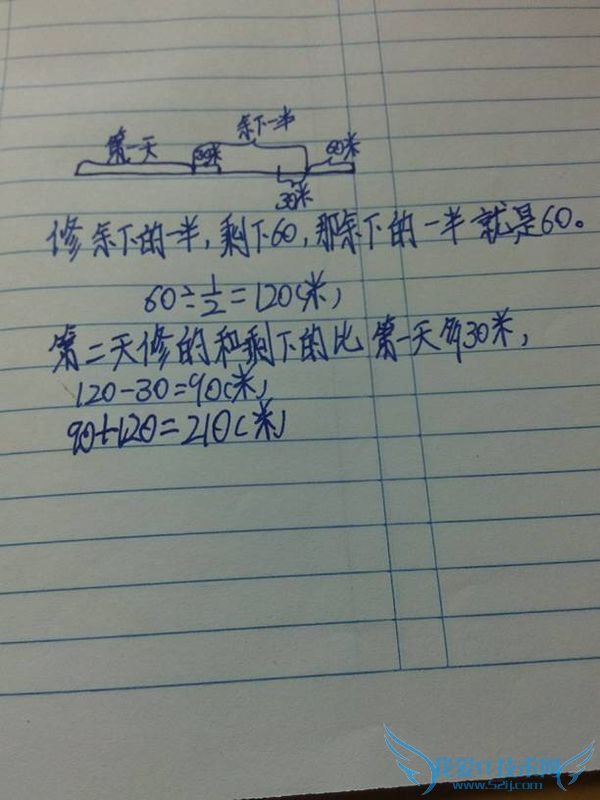 余下一半
第一天 30米 60米
30米
修余下的一半,剩下60,那余下的一半就是60。
60÷1/2=120(米)
第二天修的和剩下的比第一天多30米,
120-30=90(米)
90+120=210(米)
我爱IT技术网
www.52ij.com